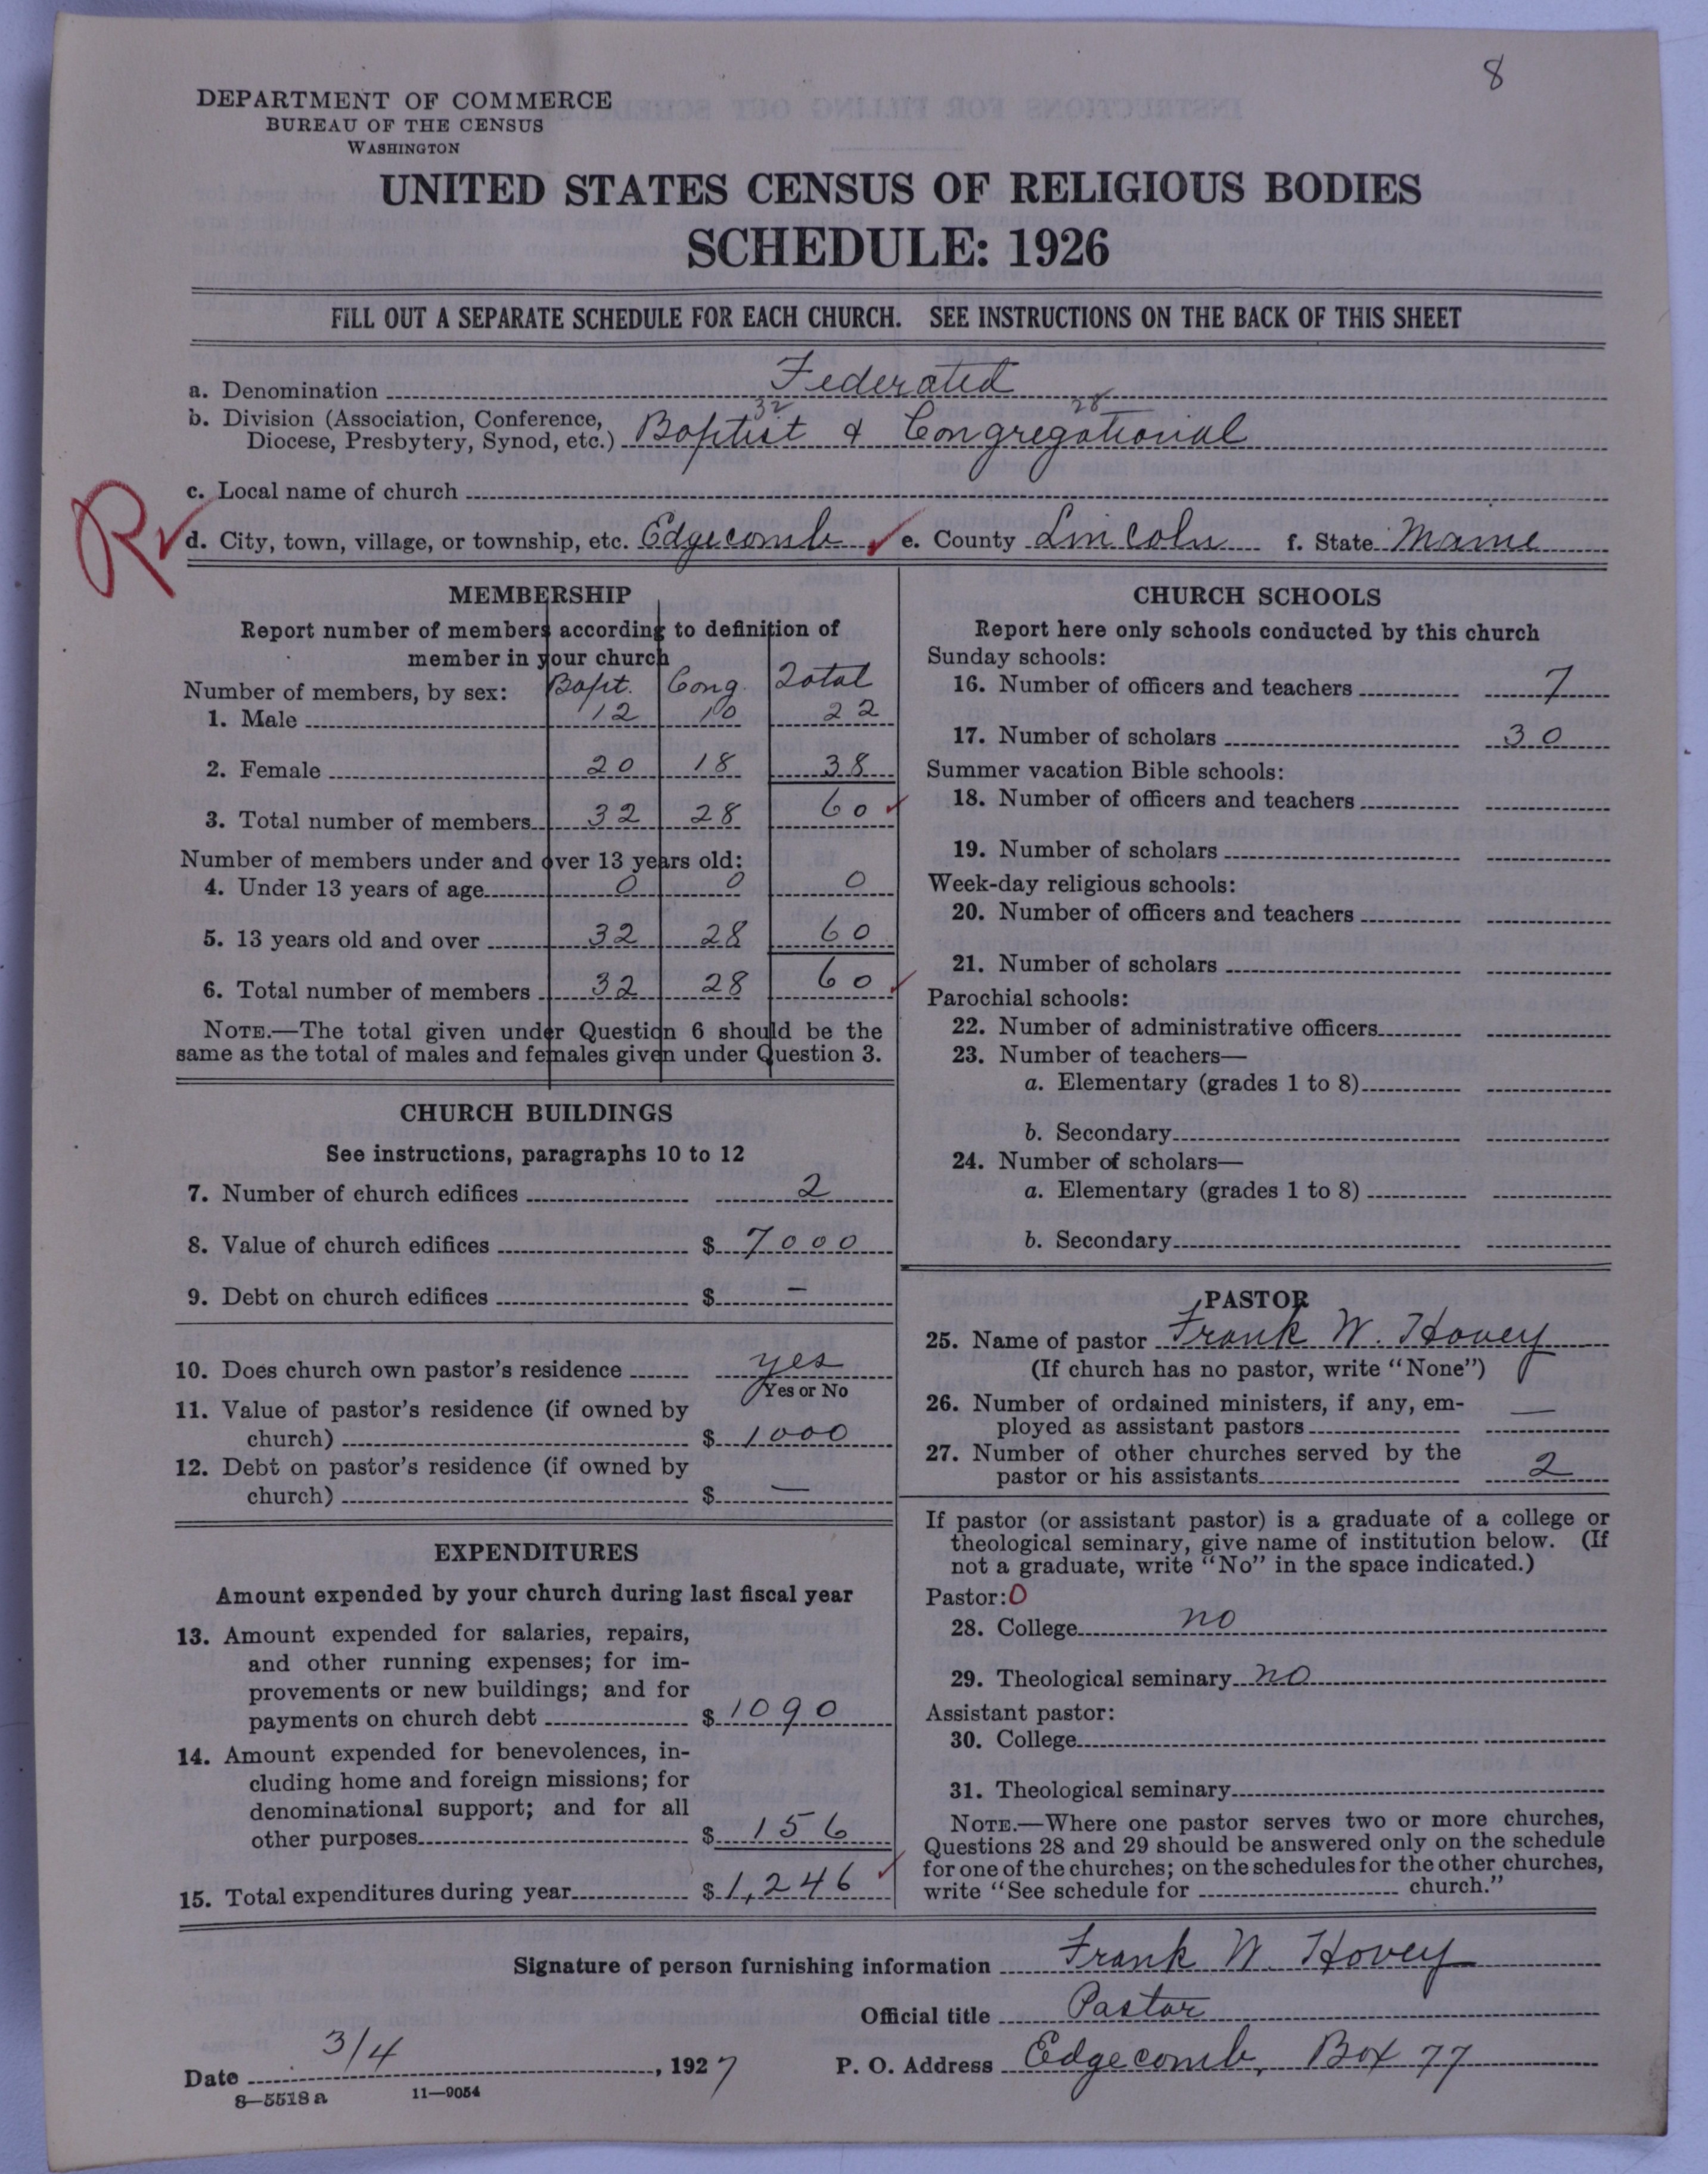 8
DEPARTMENT OF COMMERCE
BUREAU OF THE CENSUS
WASHINGTON
UNITED STATES CENSUS OF RELIGIOUS BODIES
SCHEDULE: 1926
FILL OUT A SEPARATE SCHEDULE FOR EACH CHURCH. SEE INSTRUCTIONS ON THE BACK OF THIS SHEET
a. Denomination Federated
32 28
b. Division (Association, Conference,
Diocese, Presbytery, Synod, etc.) Baptist & Congregational
c. Local name of church
R
d. City, town, village, or township, etc. Edgecomb e. County Lincoln f. State Maine
MEMBERSHIP
Report number of members according to definition of
member in your church
Number of members, by sex: Bapt. Cong. Total
1. Male 12 10 22
2. Female 20 18 38
3. Total number of members 32 28 60 ✓
Number of members under and over 13 years old:
4. Under 13 years of age 0 0 0
5. 13 years old and over 32 28 60
6. Total number of members 32 28 60 ✓
NOTE.—The total given under Question 6 should be the
same as the total of males and females given under Question 3.
CHURCH BUILDINGS
See instructions, paragraphs 10 to 12
7. Number of church edifices 2
8. Value of church edifices $ 7000
9. Debt on church edifices $ —
10. Does church own pastor's residence yes
Yes or No
11. Value of pastor's residence (if owned by
church) $ 1000
12. Debt on pastor's residence (if owned by
church) $ —
EXPENDITURES
Amount expended by your church during last fiscal year
13. Amount expended for salaries, repairs,
and other running expenses; for im-
provements or new buildings; and for
payments on church debt $ 1090
14. Amount expended for benevolences, in-
cluding home and foreign missions; for
denominational support; and for all
other purposes $ 156
15. Total expenditures during year $ 1,246 ✓
CHURCH SCHOOLS
Report here only schools conducted by this church
Sunday schools:
16. Number of officers and teachers 7
17. Number of scholars 30
Summer vacation Bible schools:
18. Number of officers and teachers
19. Number of scholars
Week-day religious schools:
20. Number of officers and teachers
21. Number of scholars
Parochial schools:
22. Number of administrative officers
23. Number of teachers—
a. Elementary (grades 1 to 8)
b. Secondary
24. Number of scholars—
a. Elementary (grades 1 to 8)
b. Secondary
PASTOR
25. Name of pastor Frank W. Hovey
(If church has no pastor, write "None")
26. Number of ordained ministers, if any, em-
ployed as assistant pastors —
27. Number of other churches served by the
pastor or his assistants 2
If pastor (or assistant pastor) is a graduate of a college or
theological seminary, give name of institution below. (If
not a graduate, write "No" in the space indicated.)
Pastor: 0
28. College no
29. Theological seminary no
Assistant pastor:
30. College
31. Theological seminary
NOTE.—Where one pastor serves two or more churches,
Questions 28 and 29 should be answered only on the schedule
for one of the churches; on the schedules for the other churches,
write "See schedule for church."
Signature of person furnishing information Frank W. Hovey
Official title Pastor
Date 3/4, 1927 P. O. Address Edgecomb, Box 77
8—5518 a 11—9054